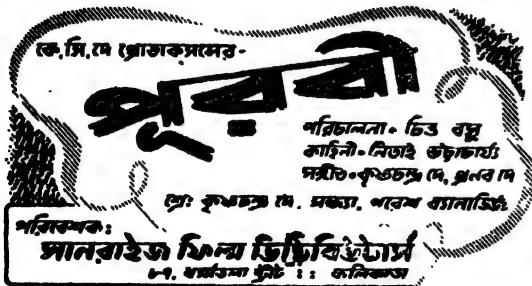 কে, সি, দে প্রোডাকসন্সের-
পূরবী
পরিচালনা • চিত্ত বসু
কাহিনী • নিতাই ভট্টাচার্য্য
সঙ্গীত • কৃষ্ণচন্দ্র দে, প্রনব দে
শ্রেঃ কৃষ্ণচন্দ্র দে, সন্ধ্যা, পরেশ ব্যানার্জি
পরিবেশক:
সানরাইজ ফিল্ম ডিষ্ট্রিবিউটার্স
৮৭, ধর্ম্মতলা ষ্ট্রীট :: কলিকাতা